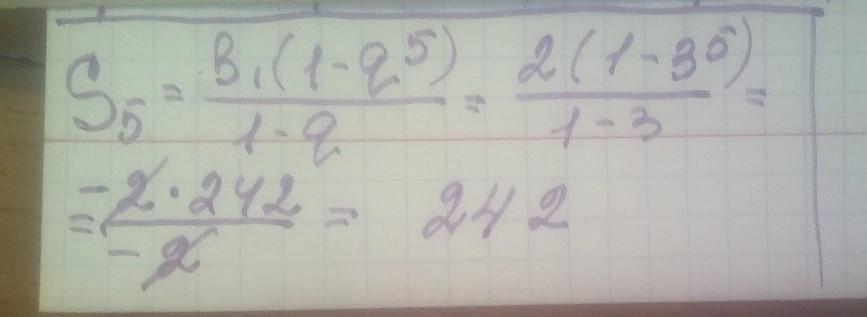 S₅ = B₁(1-q⁵)/1-q = 2(1-3⁵)/1-3 =
= -2·242/-2 = 242